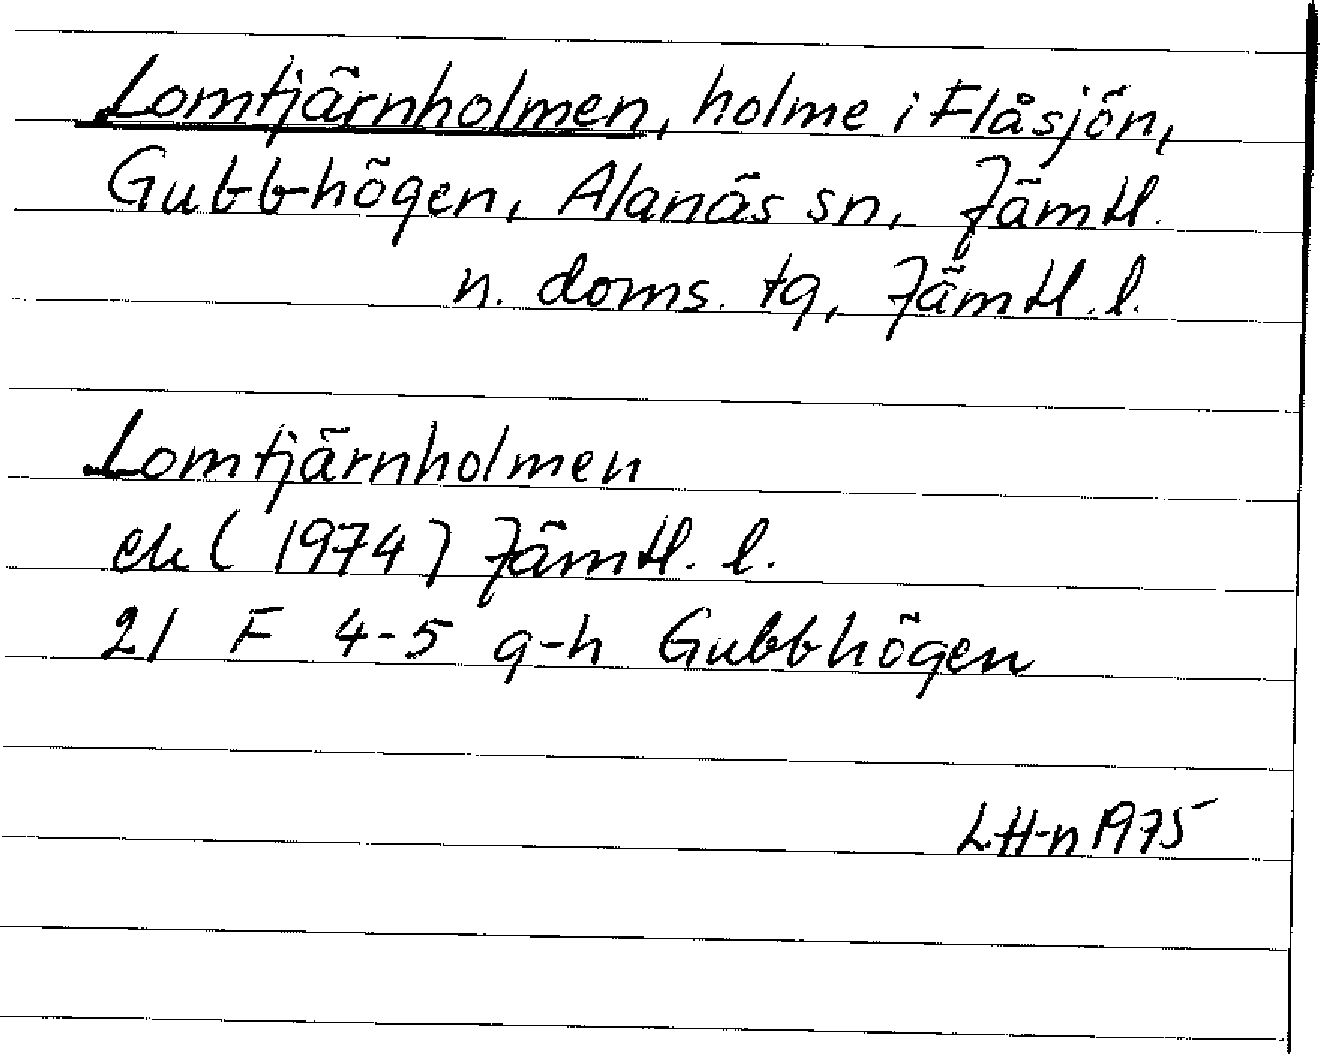 Lomtjärnholmen, holme i Flåsjön,
Gubbhögen, Alanäs sn, Jämtl.
n. doms. tg, Jämtl. l.
Lomtjärnholmen
ek (1974) Jämtl. l.
21 F 4-5 g-h Gubbhögen
LH-n 1975